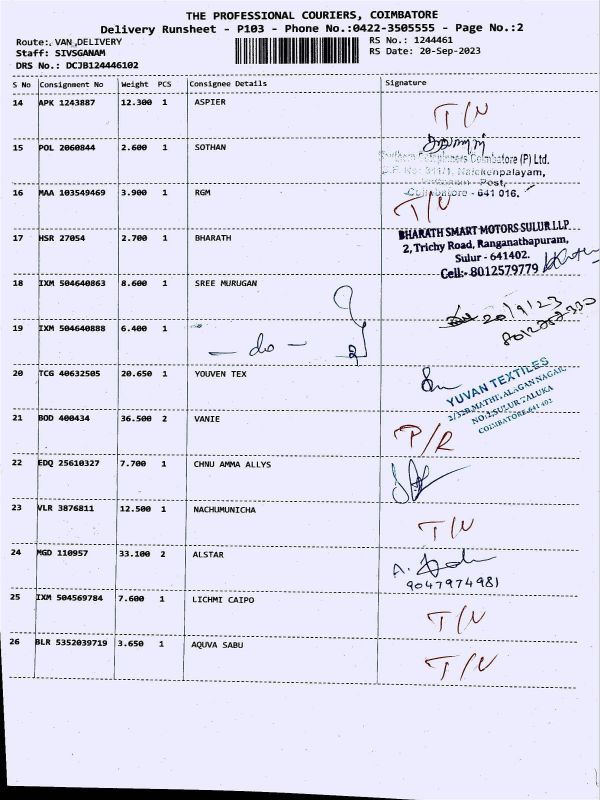 THE PROFESSIONAL COURIERS, COIMBATORE
Delivery Runsheet - P103 - Phone No.:0422-3505555 - Page No.:2
Route: VAN DELIVERY
RS No.: 1244461
Staff: SIVSGANAM
RS Date: 20-Sep-2023
DRS No.: DCJB124446102
S No Consignment No Weight PCS Consignee Details Signature
14 APK 1243887 12.300 1 ASPIER
T/N
15 POL 2060844 2.600 1 SOTHAN
Coimbatore (P) Ltd.
Naickenpalayam,
Post,
Coimbatore - 641 016.
16 MAA 103549469 3.900 1 RGM
T/N
17 HSR 27054 2.700 1 BHARATH
BHARATH SMART MOTORS SULUR LLP
2, Trichy Road, Ranganathapuram,
Sulur - 641402.
Cell:- 8012579779
18 IXM 504640863 8.600 1 SREE MURUGAN
20/9/23
19 IXM 504640888 6.400 1
- do -
20 TCG 40632505 20.650 1 YOUVEN TEX
YUVAN TEXTILES
NO:2,SULUR TALUKA
COIMBATORE-641 402
21 BOD 400434 36.500 2 VANIE
P/R
22 EDQ 25610327 7.700 1 CHNU AMMA ALLYS
23 VLR 3876811 12.500 1 NACHUMUNICHA
T/N
24 MGD 110957 33.100 2 ALSTAR
9047974981
25 IXM 504569784 7.600 1 LICHMI CAIPO
T/N
26 BLR 5352039719 3.650 1 AQUVA SABU
T/N